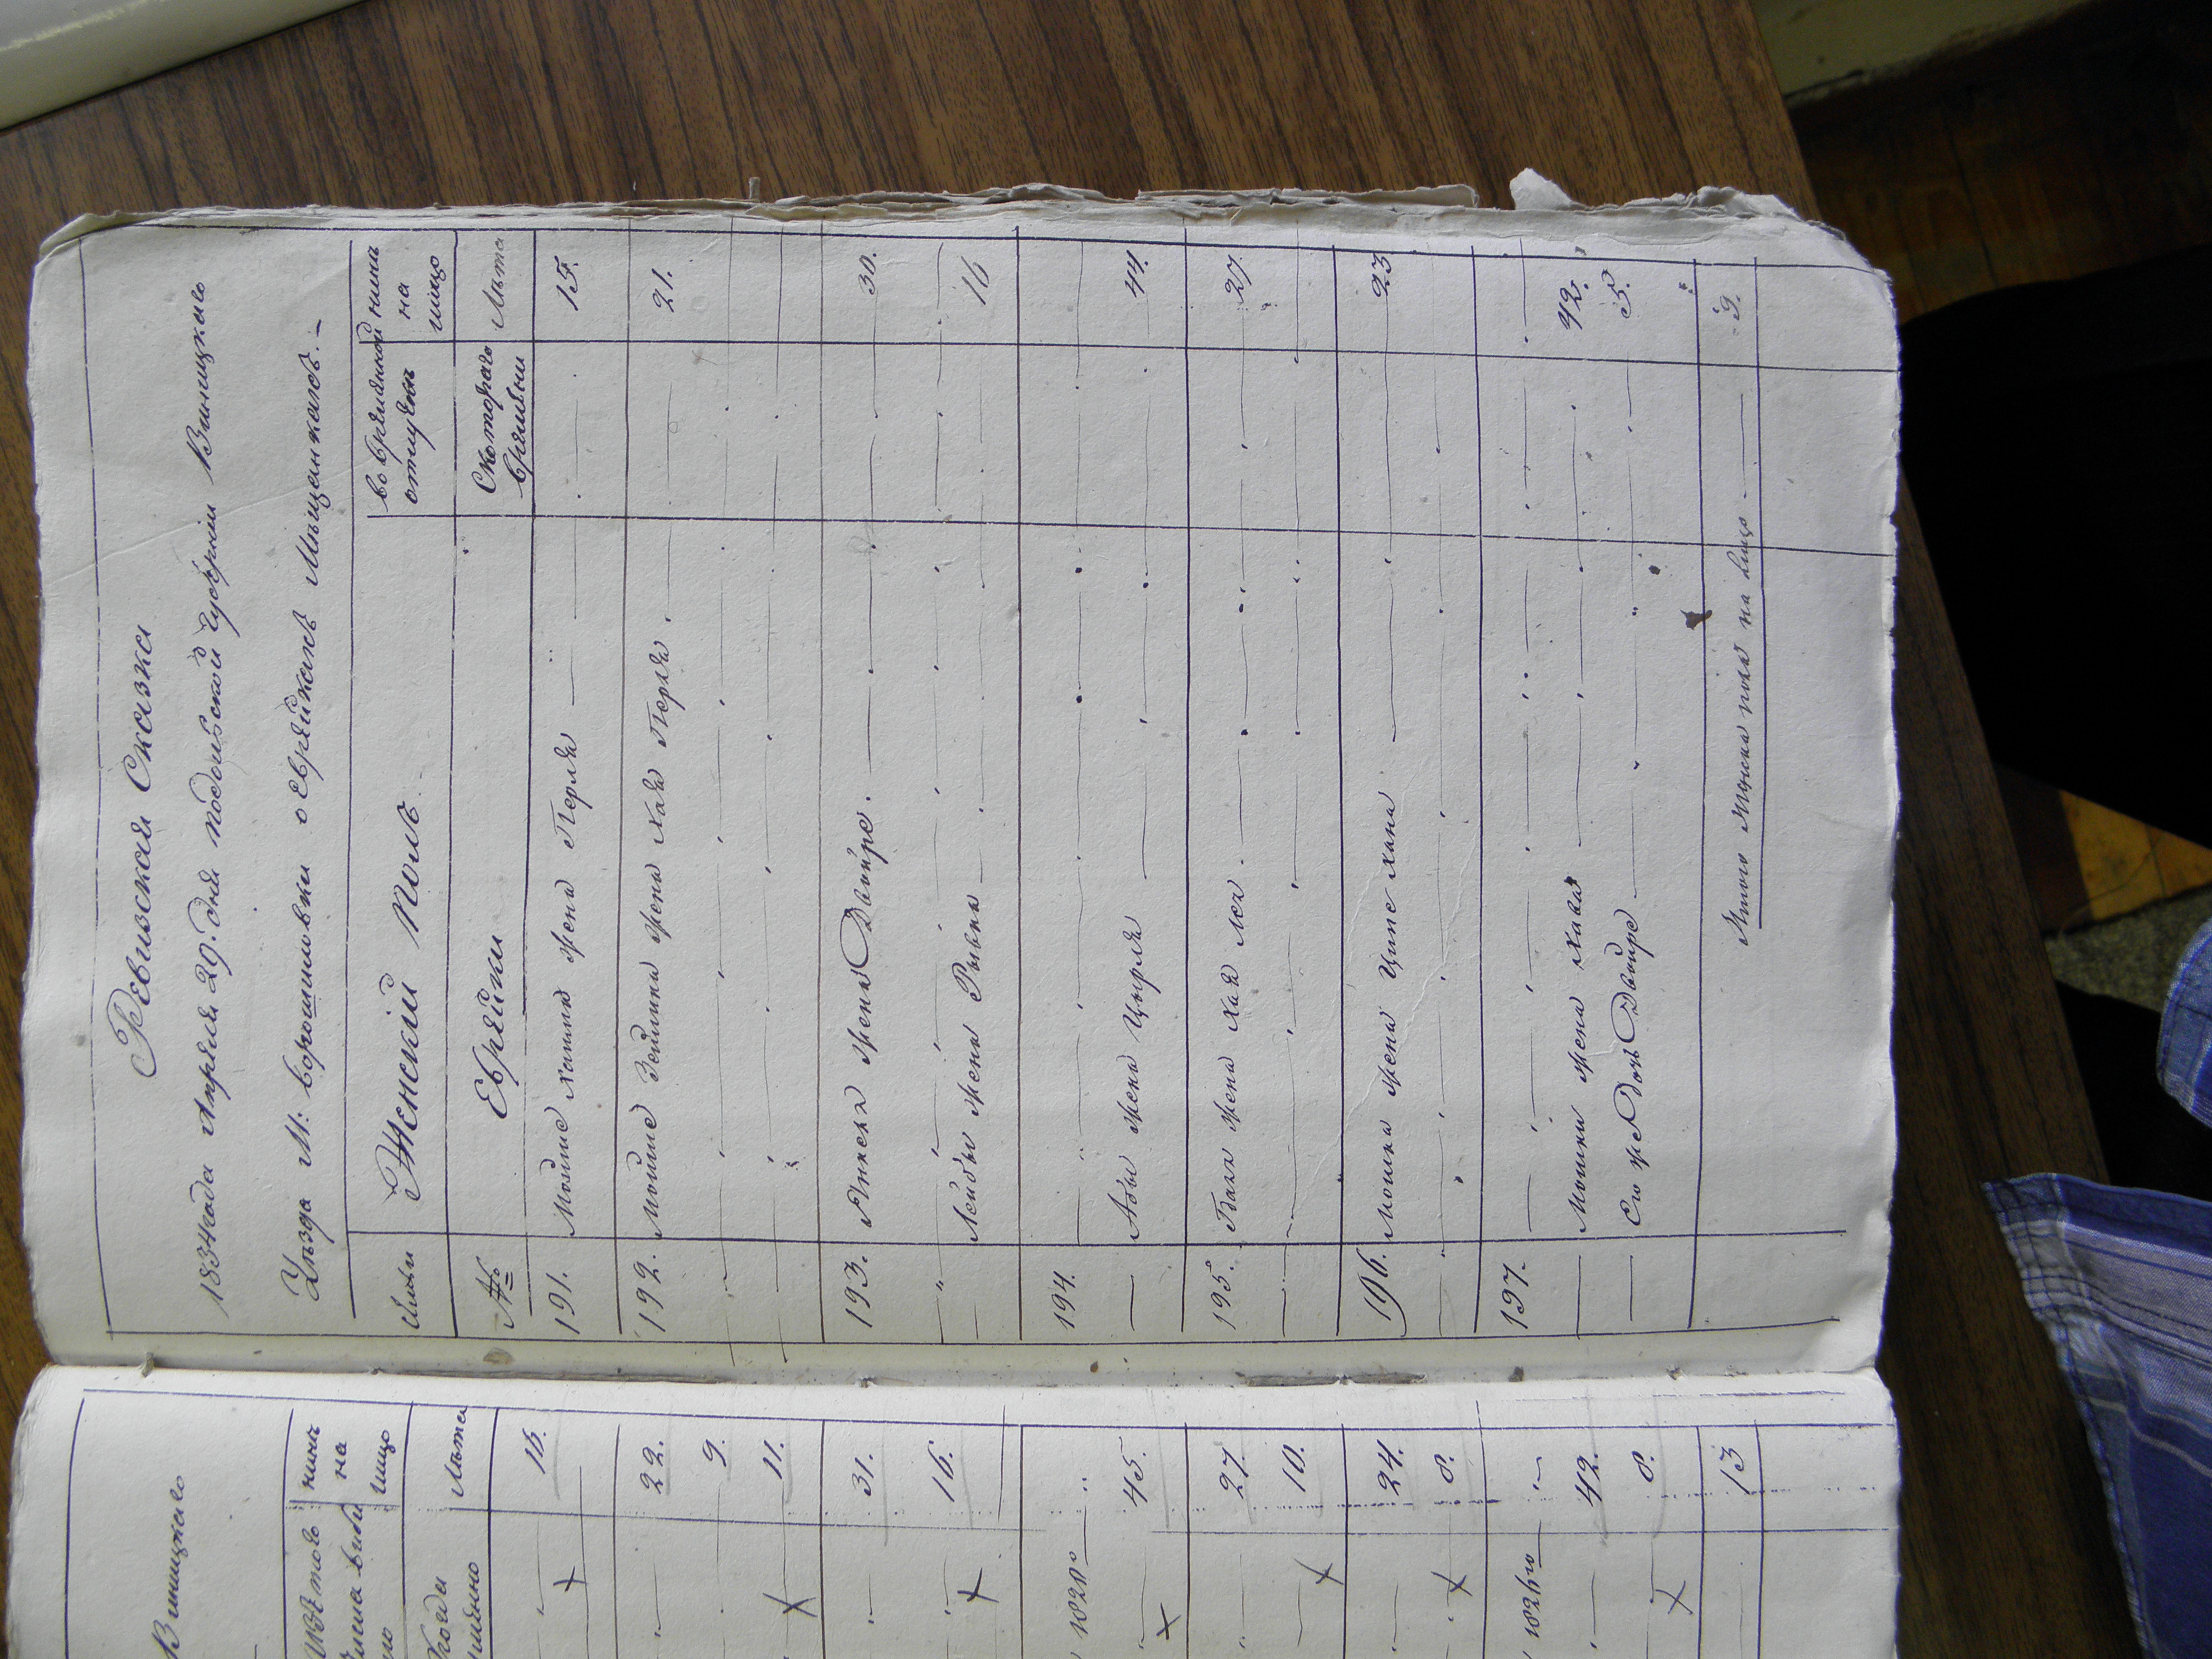 Ревизская Сказка
1834 года Апреля 29. дня подольской Губернии Винницкаго
Уезда М: ворошиловки о Еврейкахъ Мещанкахъ. —
Семьи
Женский Полъ
во временной отлучке
ныне на лицо
№
Еврейки
Скоторого времени
Лета
191. Мойше Хаима жена Перля 15.
192. Мойше Зейлика жена Хая Перля 21.
193. жена Двойре. 30.
Лейбы жена Рывка 16
194.
Абы жена Цырля 44.
195. жена Хая Лея 27.
196. Мошка жена Ципе Хана 23
197.
Мошки жена Хава 42.
Его же Дочь Двойре 5.
Итого женска пола на лицо 9.
Винницкаго
ныне на лицо
Лета
16.
22.
9.
11.
31.
16.
1820го
45.
27
10.
24.
8.
42.
8.
13